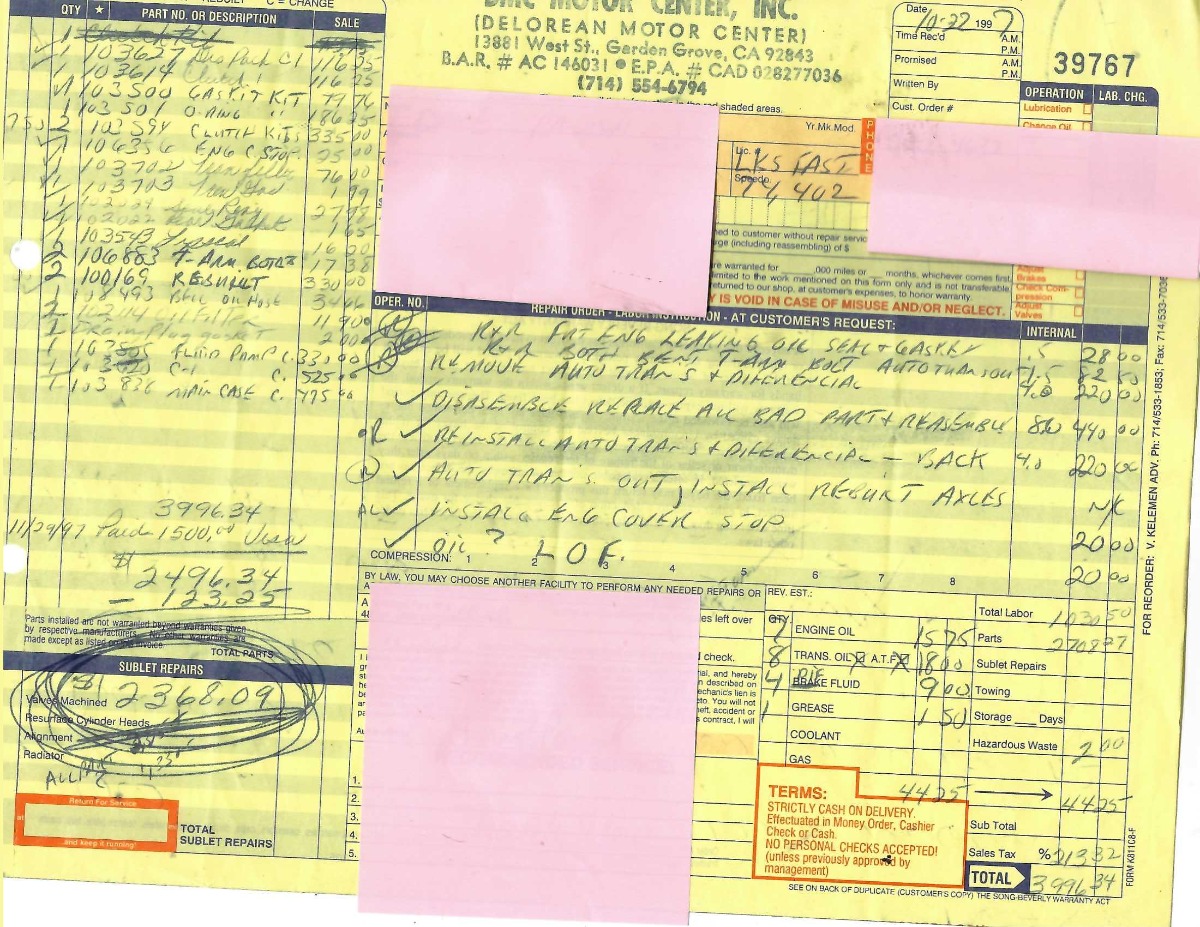 C = CHANGE
QTY ★ PART NO. OR DESCRIPTION SALE
1 103627 116 25
1 103614 116 25
1 103500 GASKIT KIT 79 76
1 103501 O-RING " 186 25
2 103594 CLUTCH KITS 335 00
106356 ENG C. STOP 25 00
103702 76 00
103703 1 99
1 103543
2 106883 T-ARM BOLTS 17 38
2 100169 REBUILT 330 00
1 FLUID PUMP C. 33,00
C-1 C. 525 00
1 103836 MAIN CASE C. 475 00
3996.34
11/29/97 Paid 1500.00 Visa
$ 2496.34
- 123.25
Parts installed are not warranted beyond warranties given
by respective manufacturers.
made except as listed
TOTAL PARTS
SUBLET REPAIRS
$ 2368.09
Valves Machined
Resurface Cylinder Heads
Alignment
Radiator
Return For Service
and keep it running!
TOTAL
SUBLET REPAIRS
DMC MOTOR CENTER, INC.
(DELOREAN MOTOR CENTER)
13881 West St., Garden Grove, CA 92843
B.A.R. # AC 146031 ● E.P.A. # CAD 028277036
(714) 554-6794
shaded areas.
Date 10-22 1997
Time Rec'd A.M.
P.M.
Promised A.M.
P.M.
Written By
Cust. Order #
39767
OPERATION LAB. CHG.
Lubrication
Change Oil
Yr.Mk.Mod.
PHONE
Lic. # LKS FAST
Speedo. 74,402
ed to customer without repair servic
ge (including reassembling) of $
re warranted for ,000 miles or months, whichever comes first.
limited to the work mentioned on this form only and is not transferable.
returned to our shop, at customer's expenses, to honor warranty.
Y IS VOID IN CASE OF MISUSE AND/OR NEGLECT.
Brakes
Check Com-
pression
Adjust
Valves
OPER. NO. REPAIR ORDER - LABOR INSTRUCTION - AT CUSTOMER'S REQUEST: INTERNAL
R+R FRT ENG LEAKING OIL SEAL + GASKET .5 28 00
R+R BOTH BENT T-ARM BOLT AUTO TRANS OUT 1.5 82 50
REMOVE AUTO TRAN'S + DIFERENCIAL 4.0 220 00
DISASEMBLE REPLACE ALL BAD PART + REASEMBLE 8.0 440 00
REINSTALL AUTO TRAN'S + DIFERENCIAL - BACK 4.0 220 00
AUTO TRAN'S OUT, INSTALL REBUILT AXLES N/C
INSTALL ENG COVER STOP 20 00
OIL? L.O.F. 20 00
COMPRESSION: 1 2 3 4 5 6 7 8
BY LAW, YOU MAY CHOOSE ANOTHER FACILITY TO PERFORM ANY NEEDED REPAIRS OR
REV. EST.:
es left over
d check.
ial, and hereby
n described on
echanic's lien is
to. You will not
eft, accident or
s contract, I will
1.
2.
3.
4.
5.
QTY.
ENGINE OIL 15 75
8 TRANS. OIL A.T.F. 18 00
4 DIF BRAKE FLUID 9 00
1 GREASE 1 50
COOLANT
GAS
44 25
Total Labor 1030 50
Parts 2708 27
Sublet Repairs
Towing
Storage Days
Hazardous Waste 2 00
44 25
Sub Total
Sales Tax % 213 32
TOTAL 3996 34
TERMS:
STRICTLY CASH ON DELIVERY.
Effectuated in Money Order, Cashier
Check or Cash.
NO PERSONAL CHECKS ACCEPTED!
(unless previously approved by
management)
SEE ON BACK OF DUPLICATE (CUSTOMER'S COPY) THE SONG-BEVERLY WARRANTY ACT
FOR REORDER: V. KELEMEN ADV. Ph: 714/533-1853; Fax: 714/533-7036
FORM K811C8-F